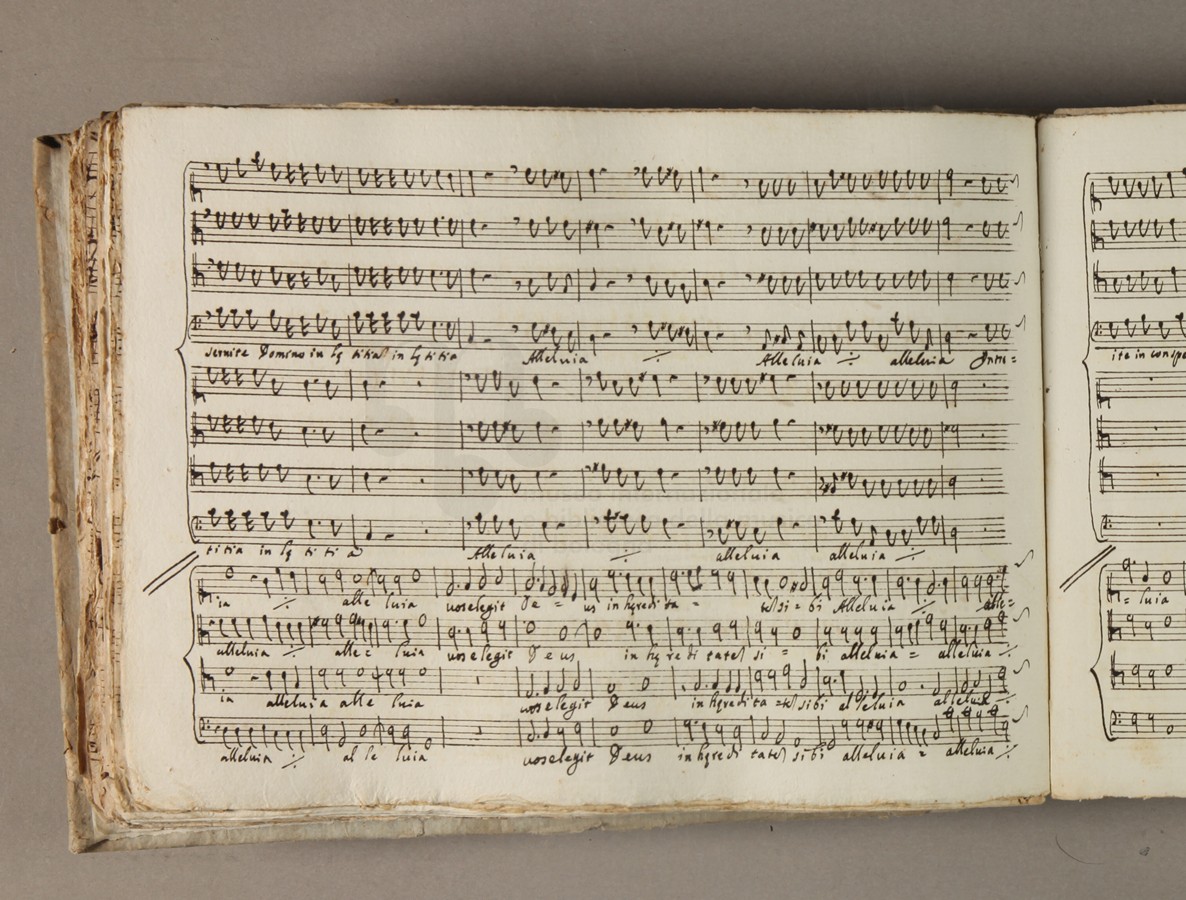 servite Domino in lętitia in lętitia Alleluia ·/· Alleluia ·/· alleluia Intro=
ite in conspe
titia in lętitia Alleluia ·/· alleluia alleluia ·/·
ia ·/· alle luia vos elegit De = us in hęredita = sibi Alleluia ·/· alle=
= luia
alleluia ·/· alle= luia vos elegit Deus in hęreditatem si = bi alleluia = alleluia ·/·
ia alleluia alle luia vos elegit Deus in hęredita = sibi alleluia alleluia ·/·
alleluia ·/· al le luia vos elegit Deus in hęreditatem sibi alleluia = alleluia ·/·